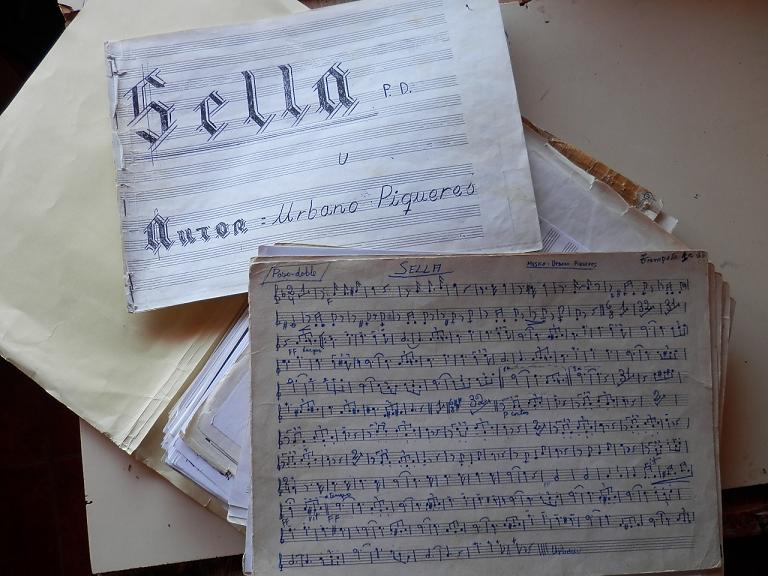 Sella P. D.
U
Autor : Urbano Piqueres
Paso-doble SELLA Musica: Urbano Piqueres Trompeta 1ª
F
FF
FF